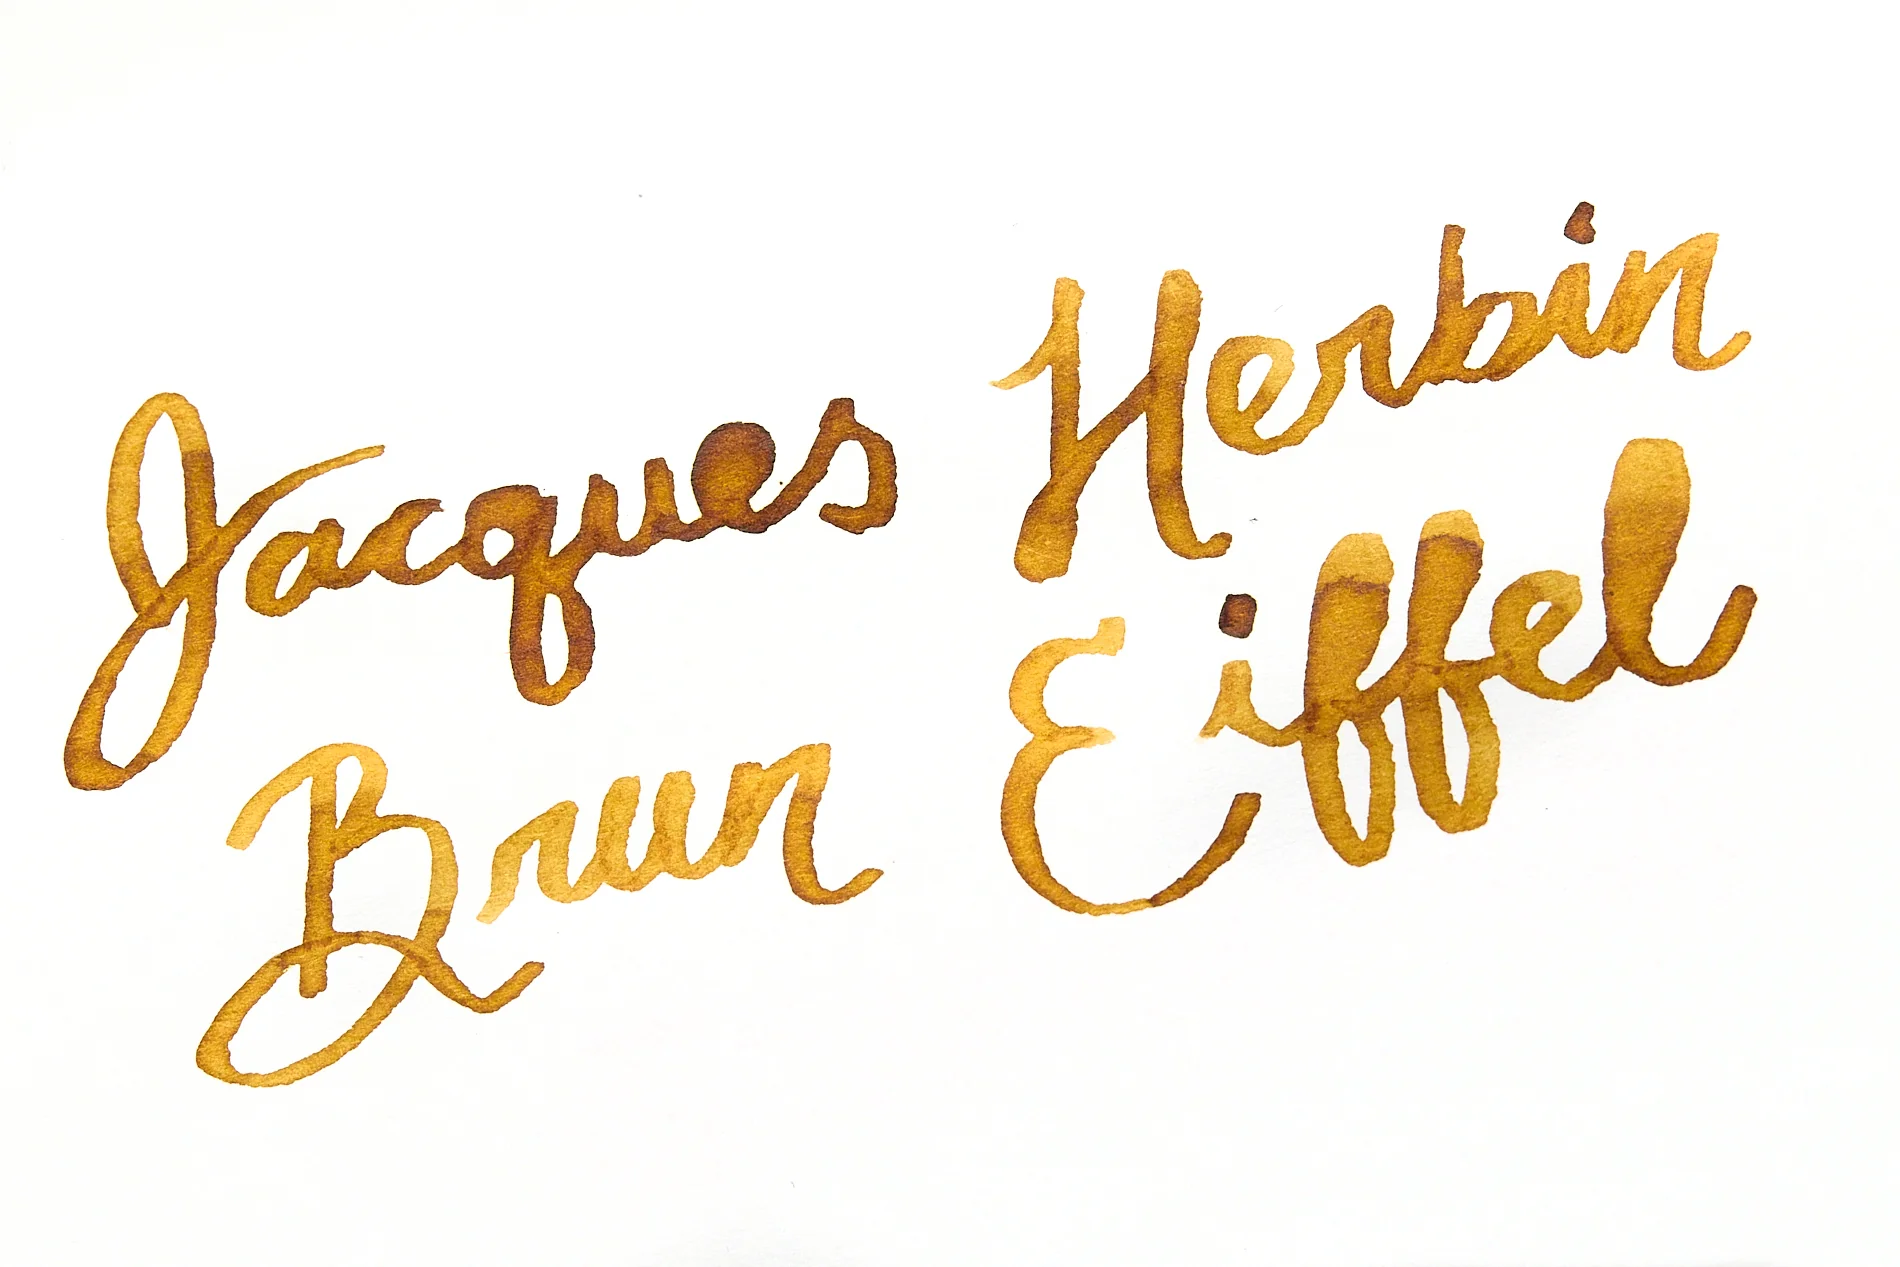 Jacques Herbin
Brun Eiffel